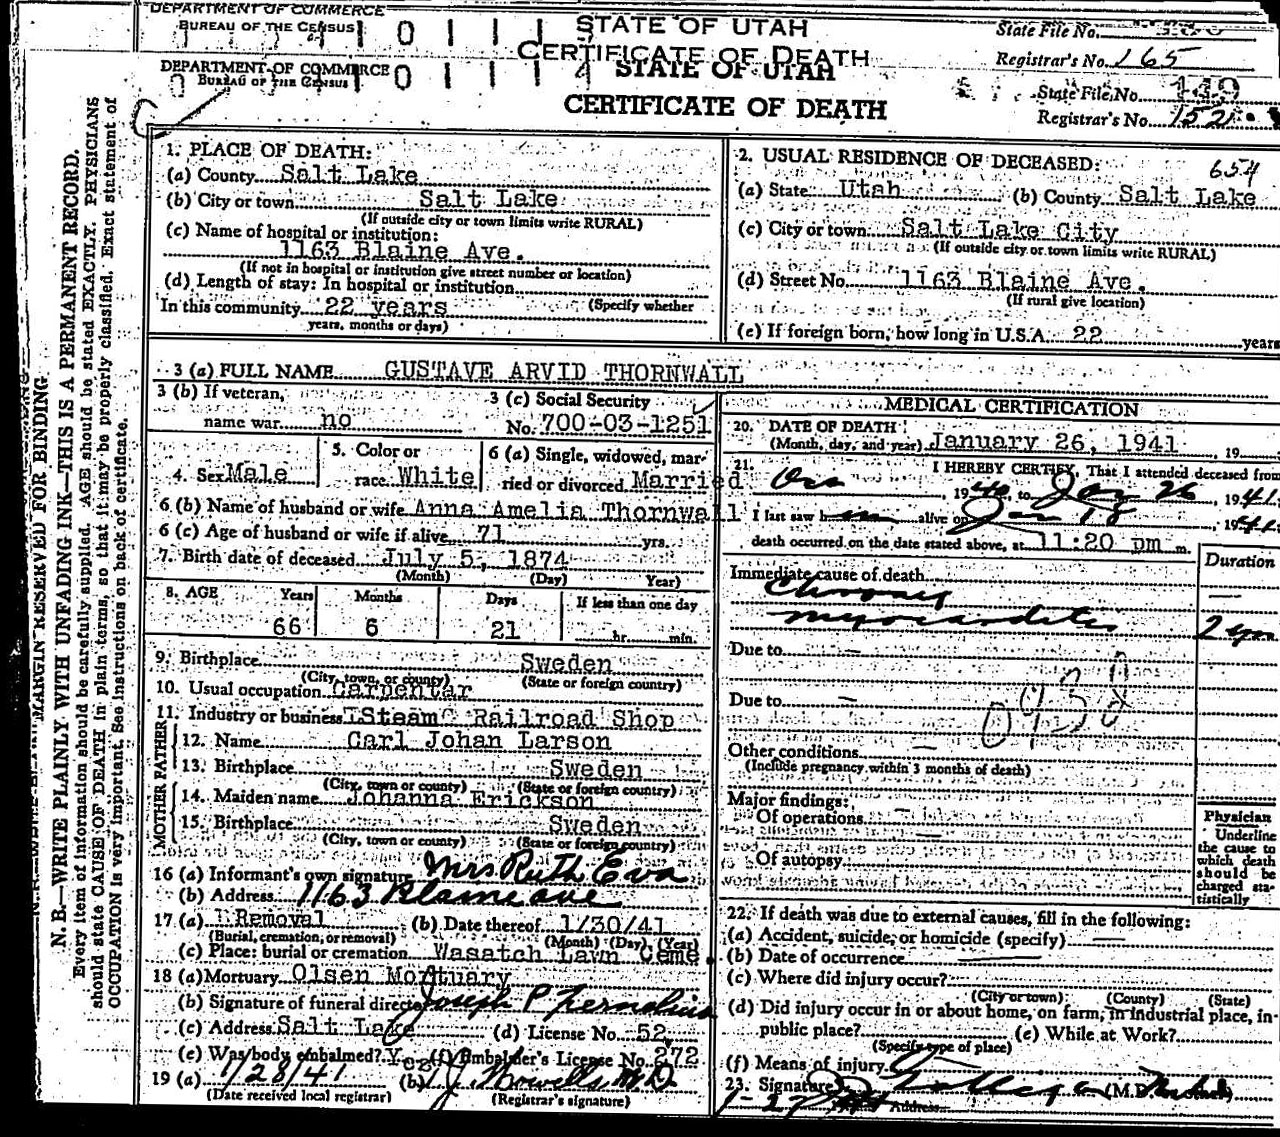 DEPARTMENT OF COMMERCE
BUREAU OF THE CENSUS
STATE OF UTAH
CERTIFICATE OF DEATH
State File No.
Registrar's No. 165
DEPARTMENT OF COMMERCE
BUREAU OF THE CENSUS
STATE OF UTAH
CERTIFICATE OF DEATH
State File No. 149
Registrar's No. 152
MARGIN RESERVED FOR BINDING
N. B.—WRITE PLAINLY WITH UNFADING INK—THIS IS A PERMANENT RECORD.
Every item of information should be carefully supplied. AGE should be stated EXACTLY. PHYSICIANS
should state CAUSE OF DEATH in plain terms, so that it may be properly classified. Exact statement of
OCCUPATION is very important. See instructions on back of certificate.
1. PLACE OF DEATH:
(a) County Salt Lake
(b) City or town Salt Lake
(If outside city or town limits write RURAL)
(c) Name of hospital or institution:
1163 Blaine Ave.
(If not in hospital or institution give street number or location)
(d) Length of stay: In hospital or institution
In this community 22 years (Specify whether
years, months or days)
2. USUAL RESIDENCE OF DECEASED: 654
(a) State Utah (b) County Salt Lake
(c) City or town Salt Lake City
(If outside city or town limits write RURAL)
(d) Street No. 1163 Blaine Ave.
(If rural give location)
(e) If foreign born, how long in U.S.A. 22 years
3 (a) FULL NAME GUSTAVE ARVID THORNWALL
3 (b) If veteran,
name war no
3 (c) Social Security
No. 700-03-1251
4. Sex Male
5. Color or
race White
6 (a) Single, widowed, mar-
ried or divorced Married
6 (b) Name of husband or wife Anna Amelia Thornwall
6 (c) Age of husband or wife if alive 71 yrs.
7. Birth date of deceased July 5, 1874
(Month) (Day) Year)
8. AGE Years Months Days If less than one day
66 6 21 hr. min.
9. Birthplace Sweden
(City, town, or county) (State or foreign country)
10. Usual occupation Carpentar
11. Industry or business Steam Railroad Shop
FATHER
12. Name Carl Johan Larson
13. Birthplace Sweden
(City, town or county) (State or foreign country)
MOTHER
14. Maiden name Johanna Erickson
15. Birthplace Sweden
(City, town or county) (State or foreign country)
16 (a) Informant's own signature Mrs Ruth Eva
(b) Address 1163 Blaine ave
17 (a) Removal (b) Date thereof 1/30/41
(Burial, cremation, or removal) (Month) (Day) (Year)
(c) Place: burial or cremation Wasatch Lawn Ceme.
18 (a) Mortuary Olsen Mortuary
(b) Signature of funeral director Joseph P
(c) Address Salt Lake (d) License No. 52
(e) Was body embalmed? Yes (f) Embalmer's License No. 272
19 (a) 1/28/41 (b) M.D.
(Date received local registrar) (Registrar's signature)
MEDICAL CERTIFICATION
20. DATE OF DEATH
(Month, day, and year) January 26, 1941, 19
21. I HEREBY CERTIFY, That I attended deceased from
, 1940, to Jan 26, 1941.
I last saw him alive on Jan 18, 1941
death occurred on the date stated above, at 11:20 pm m.
Duration
Immediate cause of death
Chronic
myocarditis 2 yrs
Due to
Due to
093d
Other conditions
(Include pregnancy within 3 months of death)
Major findings:
Of operations
Of autopsy
Physician
Underline
the cause to
which death
should be
charged sta-
tistically
22. If death was due to external causes, fill in the following:
(a) Accident, suicide, or homicide (specify)
(b) Date of occurrence
(c) Where did injury occur?
(City or town) (County) (State)
(d) Did injury occur in or about home, on farm, in industrial place, in
public place? (e) While at Work?
(Specify type of place)
(f) Means of injury
23. Signature (M.D.
Address